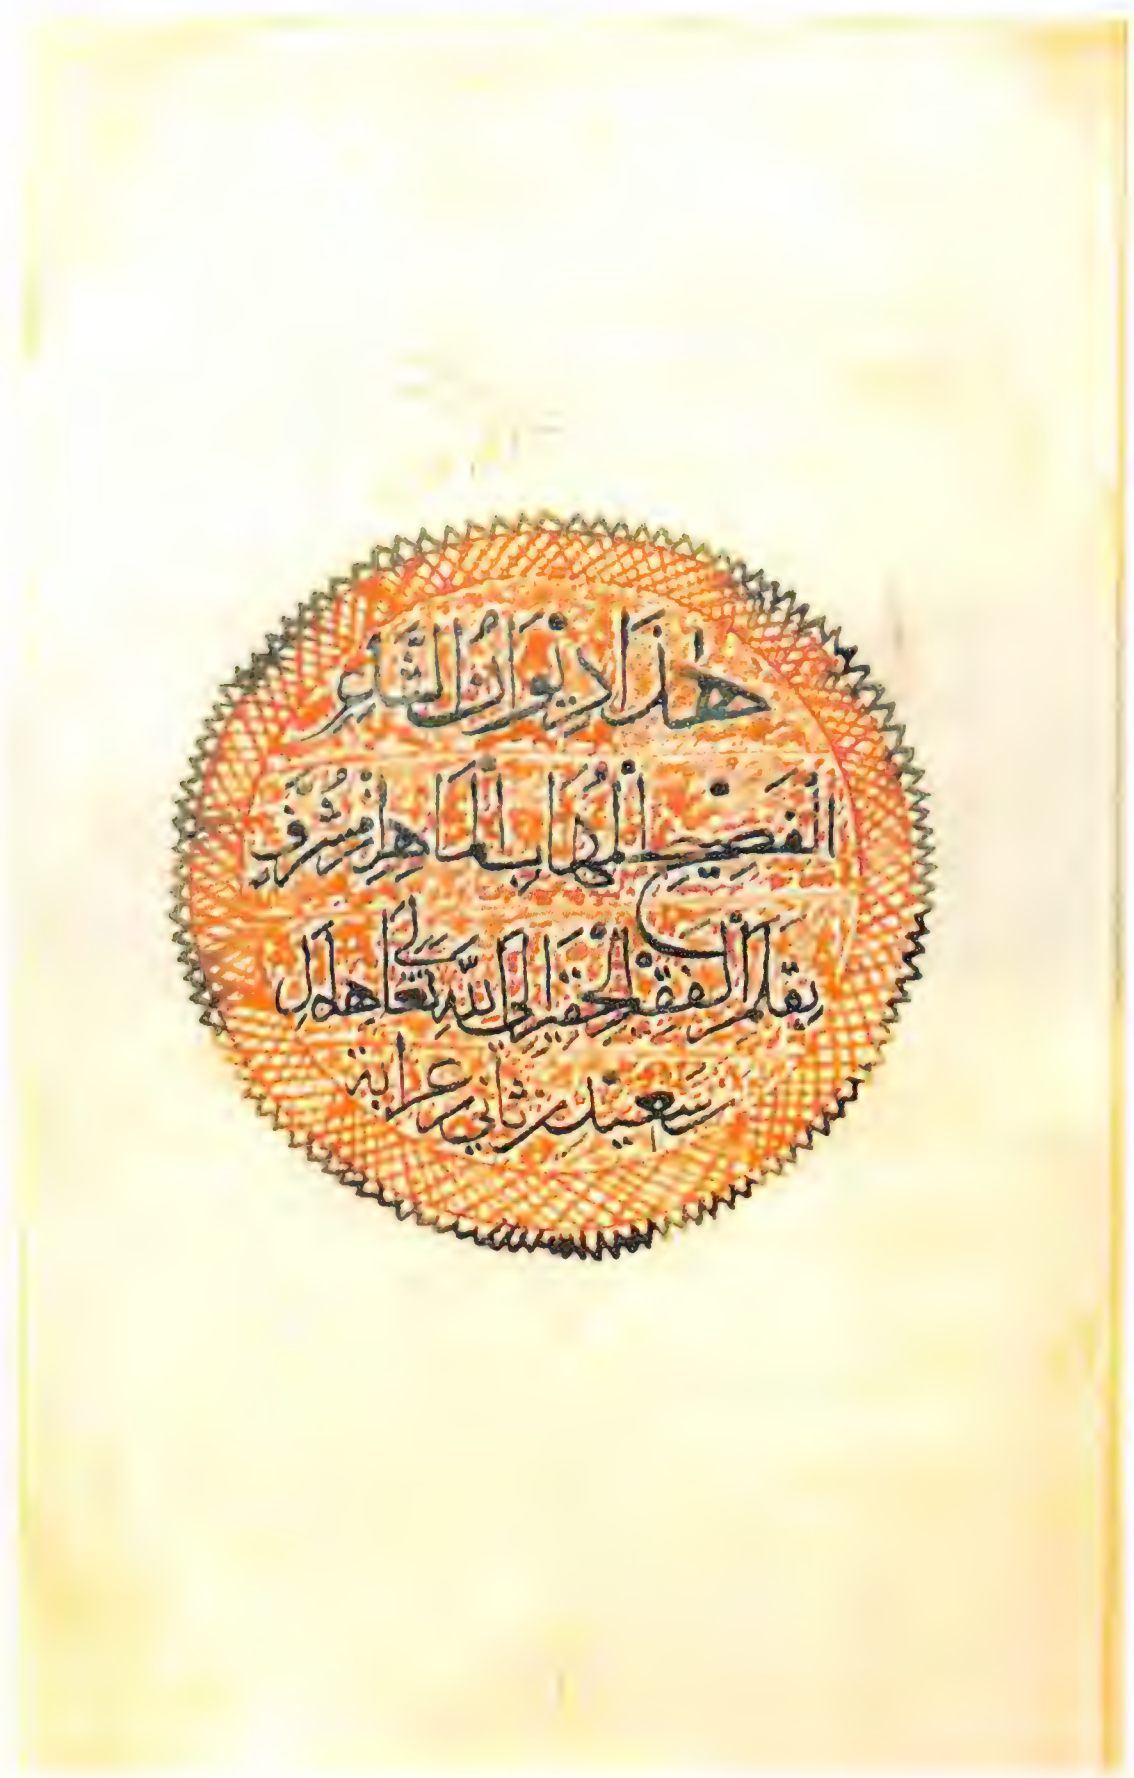 هٰذَا دِيْوَانُ الشَّاعِرِ
الْفَصِيْحِ الْمُهَابِ الْمَاهِرِ
بِقَلَمِ الْفَقِيْرِ الْحَقِيْرِ إِلَى اللّٰهِ تَعَالَى هِلَالِ
سَعِيْد بن ثاني عرابة